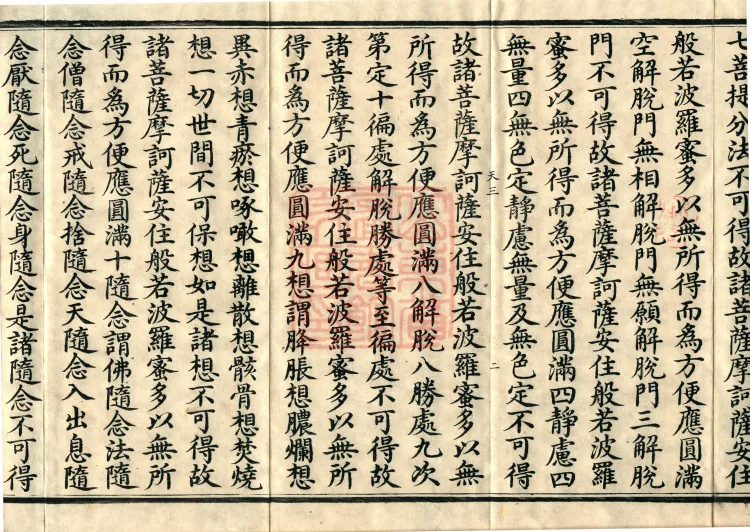 七菩提分法不可得故諸菩薩摩訶薩安住
般若波羅蜜多以無所得而為方便應圓滿
空解脫門無相解脫門無願解脫門三解脫
門不可得故諸菩薩摩訶薩安住般若波羅
蜜多以無所得而為方便應圓滿四靜慮四
無量四無色定靜慮無量及無色定不可得
天三
二
故諸菩薩摩訶薩安住般若波羅蜜多以無
所得而為方便應圓滿八解脫八勝處九次
第定十徧處解脫勝處等至徧處不可得故
諸菩薩摩訶薩安住般若波羅蜜多以無所
得而為方便應圓滿九想謂胮脹想膿爛想
異赤想青瘀想啄噉想離散想骸骨想焚燒
想一切世間不可保想如是諸想不可得故
諸菩薩摩訶薩安住般若波羅蜜多以無所
得而為方便應圓滿十隨念謂佛隨念法隨
念僧隨念戒隨念捨隨念天隨念入出息隨
念厭隨念死隨念身隨念是諸隨念不可得